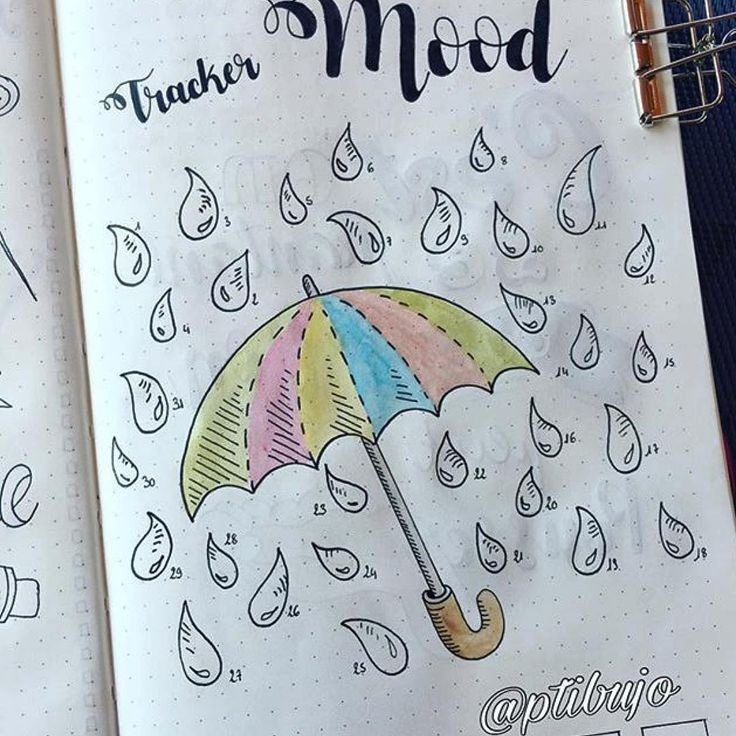 Mood
Tracker
6 8
3 5
1 7 9 10 11
2 12
4 13
14 15
31 16 17
30 22
23 20
28 21 19 18
29 24
26
27 25
@ptibujo